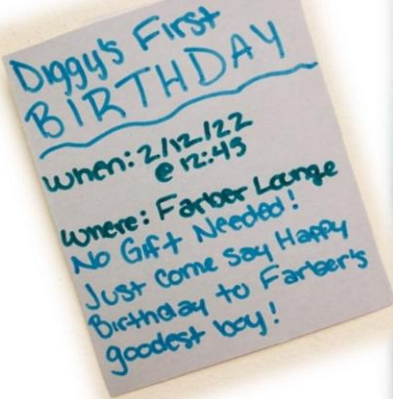 Diggy's First
BIRTHDAY
When: 2/12/22
@ 12:45
Where: Farber Lounge
No Gift Needed!
Just Come Say Happy
Birthday to Farber's
goodest boy!